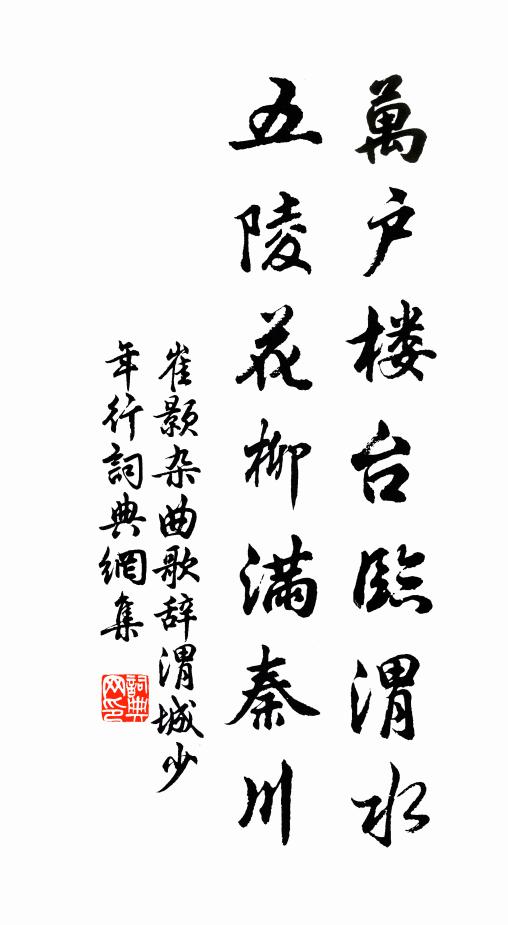 萬户楼台臨渭水
五陵花柳满秦川
崔颢杂曲歌辞渭城少
年行詞典網集
詞典
网印